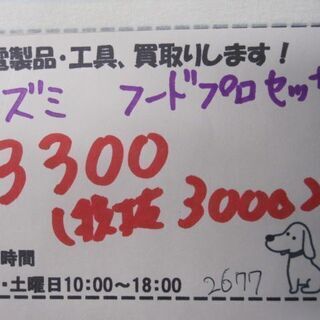 電製品・工具、買取りします！
ズミ フードプロセッサ
3300
(税抜 3000)
時間
・土曜日10:00～18:00
2677